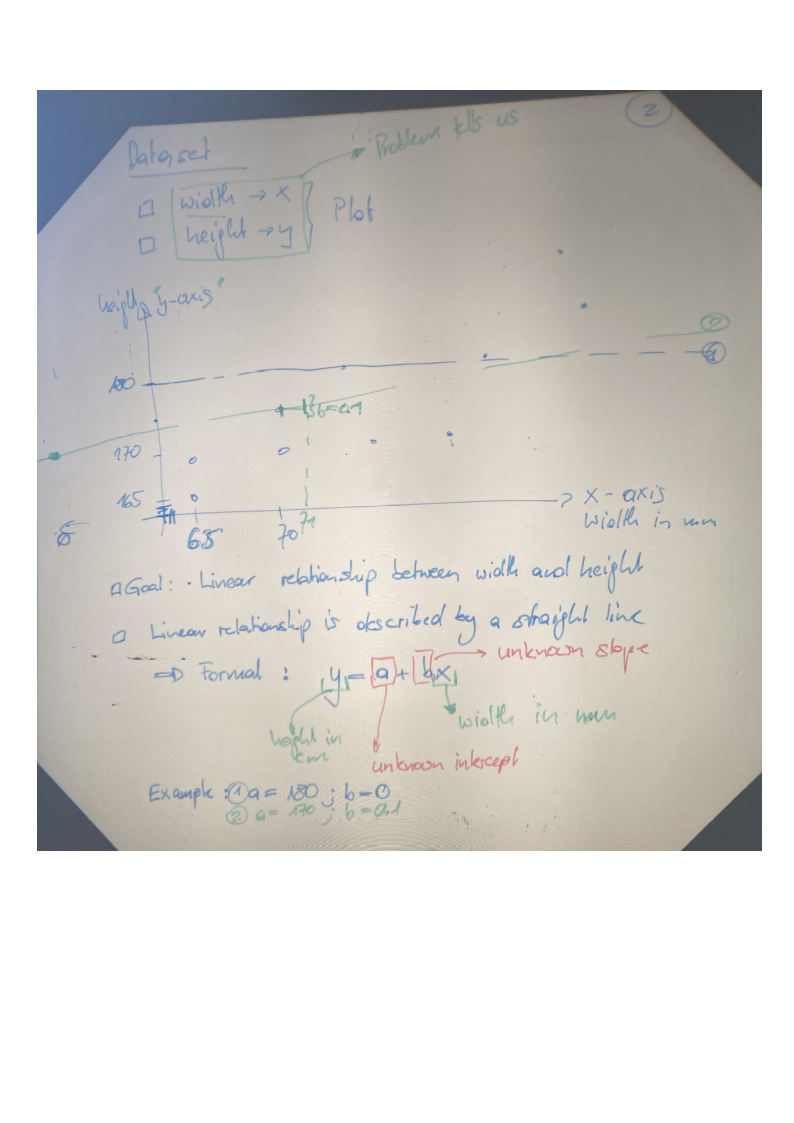 2
Problem tells us
Dataset
width → x
height → y
Plot
height "y-axis"
2
1
180
b=0.1
170
165
x-axis
width in mm
65
70
71
Goal: · Linear relationship between width and height
Linear relationship is described by a straight line
⇒ Formal : y = a + bx
unknown slope
width in mm
height in cm
unknown intercept
Example : 1 a = 180 ; b = 0
2 a = 170 ; b = 0.1